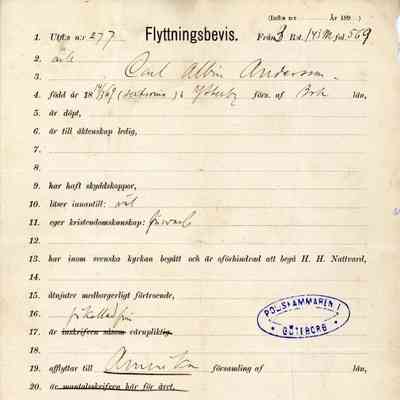 (Infln n:r År 189 )
1. Utfl:n n:r 277 Flyttningsbevis. Från B Rot. 143 M fol. 569
2.
3. Carl Albin Andersson
4. född år 18 69 (sextionio) i Ytterby förs. af Boh län,
5. är döpt,
6. är till äktenskap ledig,
7.
8.
9. har haft skyddskoppor,
10. läser innantill: väl
11. eger kristendomskunskap: försvarl
12.
13. har inom svenska kyrkan begått och är oförhindrad att begå H. H. Nattvard,
14.
15. åtnjuter medborgerligt förtroende,
16.
17. är inskrifven såsom värnpligtig.
18.
19. afflyttar till Amerika församling af län,
20. är mantalsskrifven här för året.
POLISKAMMAREN I
GÖTEBORG